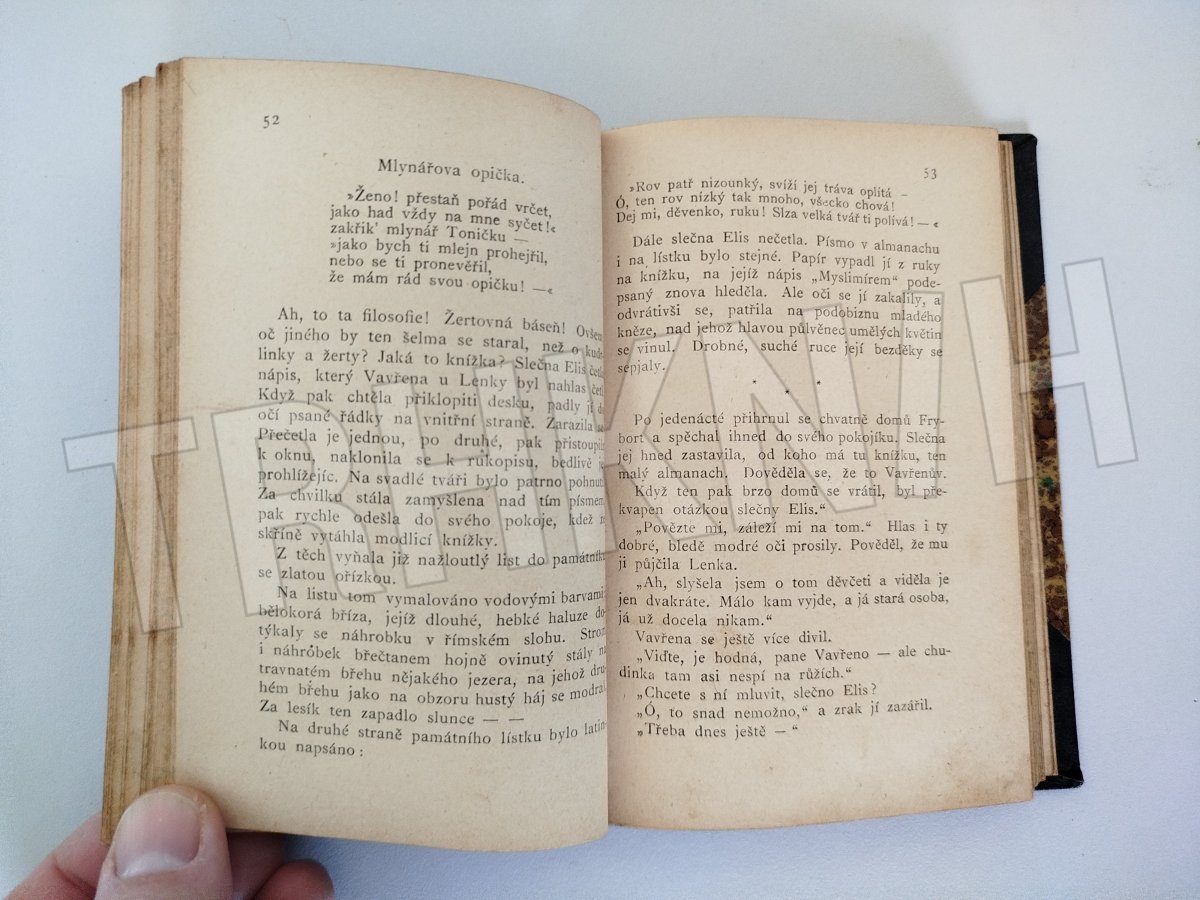 52
Mlynářova opička.
»Ženo! přestaň pořád vrčet,
jako had vždy na mne syčet!«
zakřik' mlynář Toničku —
»jako bych ti mlejn prohejřil,
nebo se ti pronevěřil,
že mám rád svou opičku! —«
Ah, to ta filosofie! Žertovná báseň! Ovšem
oč jiného by ten šelma se staral, než o kude
linky a žerty? Jaká to knížka? Slečna Elis četla
nápis, který Vavřena u Lenky byl nahlas četl
Když pak chtěla přiklopiti desku, padly jí do
očí psané řádky na vnitřní straně. Zarazila se
Přečetla je jednou, po druhé, pak přistoupila
k oknu, naklonila se k rukopisu, bedlivě je
prohlížejíc. Na svadlé tváři bylo patrno pohnutí
Za chvilku stála zamyšlena nad tím písmem
pak rychle odešla do svého pokoje, kdež
skříně vytáhla modlicí knížky.
Z těch vyňala již nažloutlý list do památníku
se zlatou ořízkou.
Na listu tom vymalováno vodovými barvami
bělokorá bříza, jejíž dlouhé, hebké haluze do-
týkaly se náhrobku v římském slohu. Strom
i náhrobek břečtanem hojně ovinutý stály na
travnatém břehu nějakého jezera, na jehož dru-
hém břehu jako na obzoru hustý háj se modral
Za lesík ten zapadlo slunce — —
Na druhé straně památního lístku bylo latin-
kou napsáno:
53
»Rov patř nizounký, svíží jej tráva oplítá –
Ó, ten rov nízký tak mnoho, všecko chová!
Dej mi, děvenko, ruku! Slza velká tvář ti polívá! —«
Dále slečna Elis nečetla. Písmo v almanachu
i na lístku bylo stejné. Papír vypadl jí z ruky
na knížku, na jejíž nápis „Myslimírem" pode-
psaný znova hleděla. Ale oči se jí zakalily, a
odvrátivši se, patřila na podobiznu mladého
kněze, nad jehož hlavou půlvěnec umělých květin
se vinul. Drobné, suché ruce její bezděky se
sepjaly.
* * *
Po jedenácté přihrnul se chvatně domů Fry-
bort a spěchal ihned do svého pokojíku. Slečna
jej hned zastavila, od koho má tu knížku, ten
malý almanach. Dověděla se, že to Vavřenův.
Když ten pak brzo domů se vrátil, byl pře-
kvapen otázkou slečny Elis."
„Povězte mi, záleží mi na tom." Hlas i ty
dobré, bledě modré oči prosily. Pověděl, že mu
ji půjčila Lenka.
„Ah, slyšela jsem o tom děvčeti a viděla je
jen dvakráte. Málo kam vyjde, a já stará osoba,
já už docela nikam."
Vavřena se ještě více divil.
„Viďte, je hodná, pane Vavřeno — ale chu-
dinka tam asi nespí na růžích."
„Chcete s ní mluvit, slečno Elis?
„Ó, to snad nemožno," a zrak jí zazářil.
„Třeba dnes ještě — "
TRHKNIH